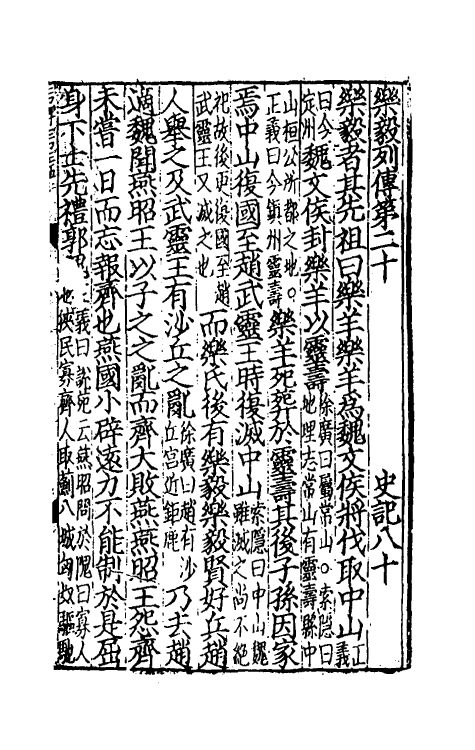 樂毅列傳第二十　史記八十
樂毅者其先祖曰樂羊樂羊爲魏文侯將伐取中山正義
曰今定州魏文侯封樂羊以靈壽徐廣曰屬常山○索隱曰地理志常山有靈壽縣中
山桓公所都之地○正義曰今鎮州靈壽樂羊死葬於靈壽其後子孫因家
焉中山復國至趙武靈王時復滅中山索隱曰中山魏雖滅之尚不絕
祀故後更復國至趙武靈王又滅之也而樂氏後有樂毅樂毅賢好兵趙
人舉之及武靈王有沙丘之亂徐廣曰趙有沙丘宮近鉅鹿乃去趙
適魏聞燕昭王以子之之亂而齊大敗燕燕昭王怨齊
未嘗一日而忘報齊也燕國小辟遠力不能制於是屈
身下士先禮郭義曰說苑云燕昭問於隗曰寡人地狹民寡齊人取薊八城匈奴驅馳